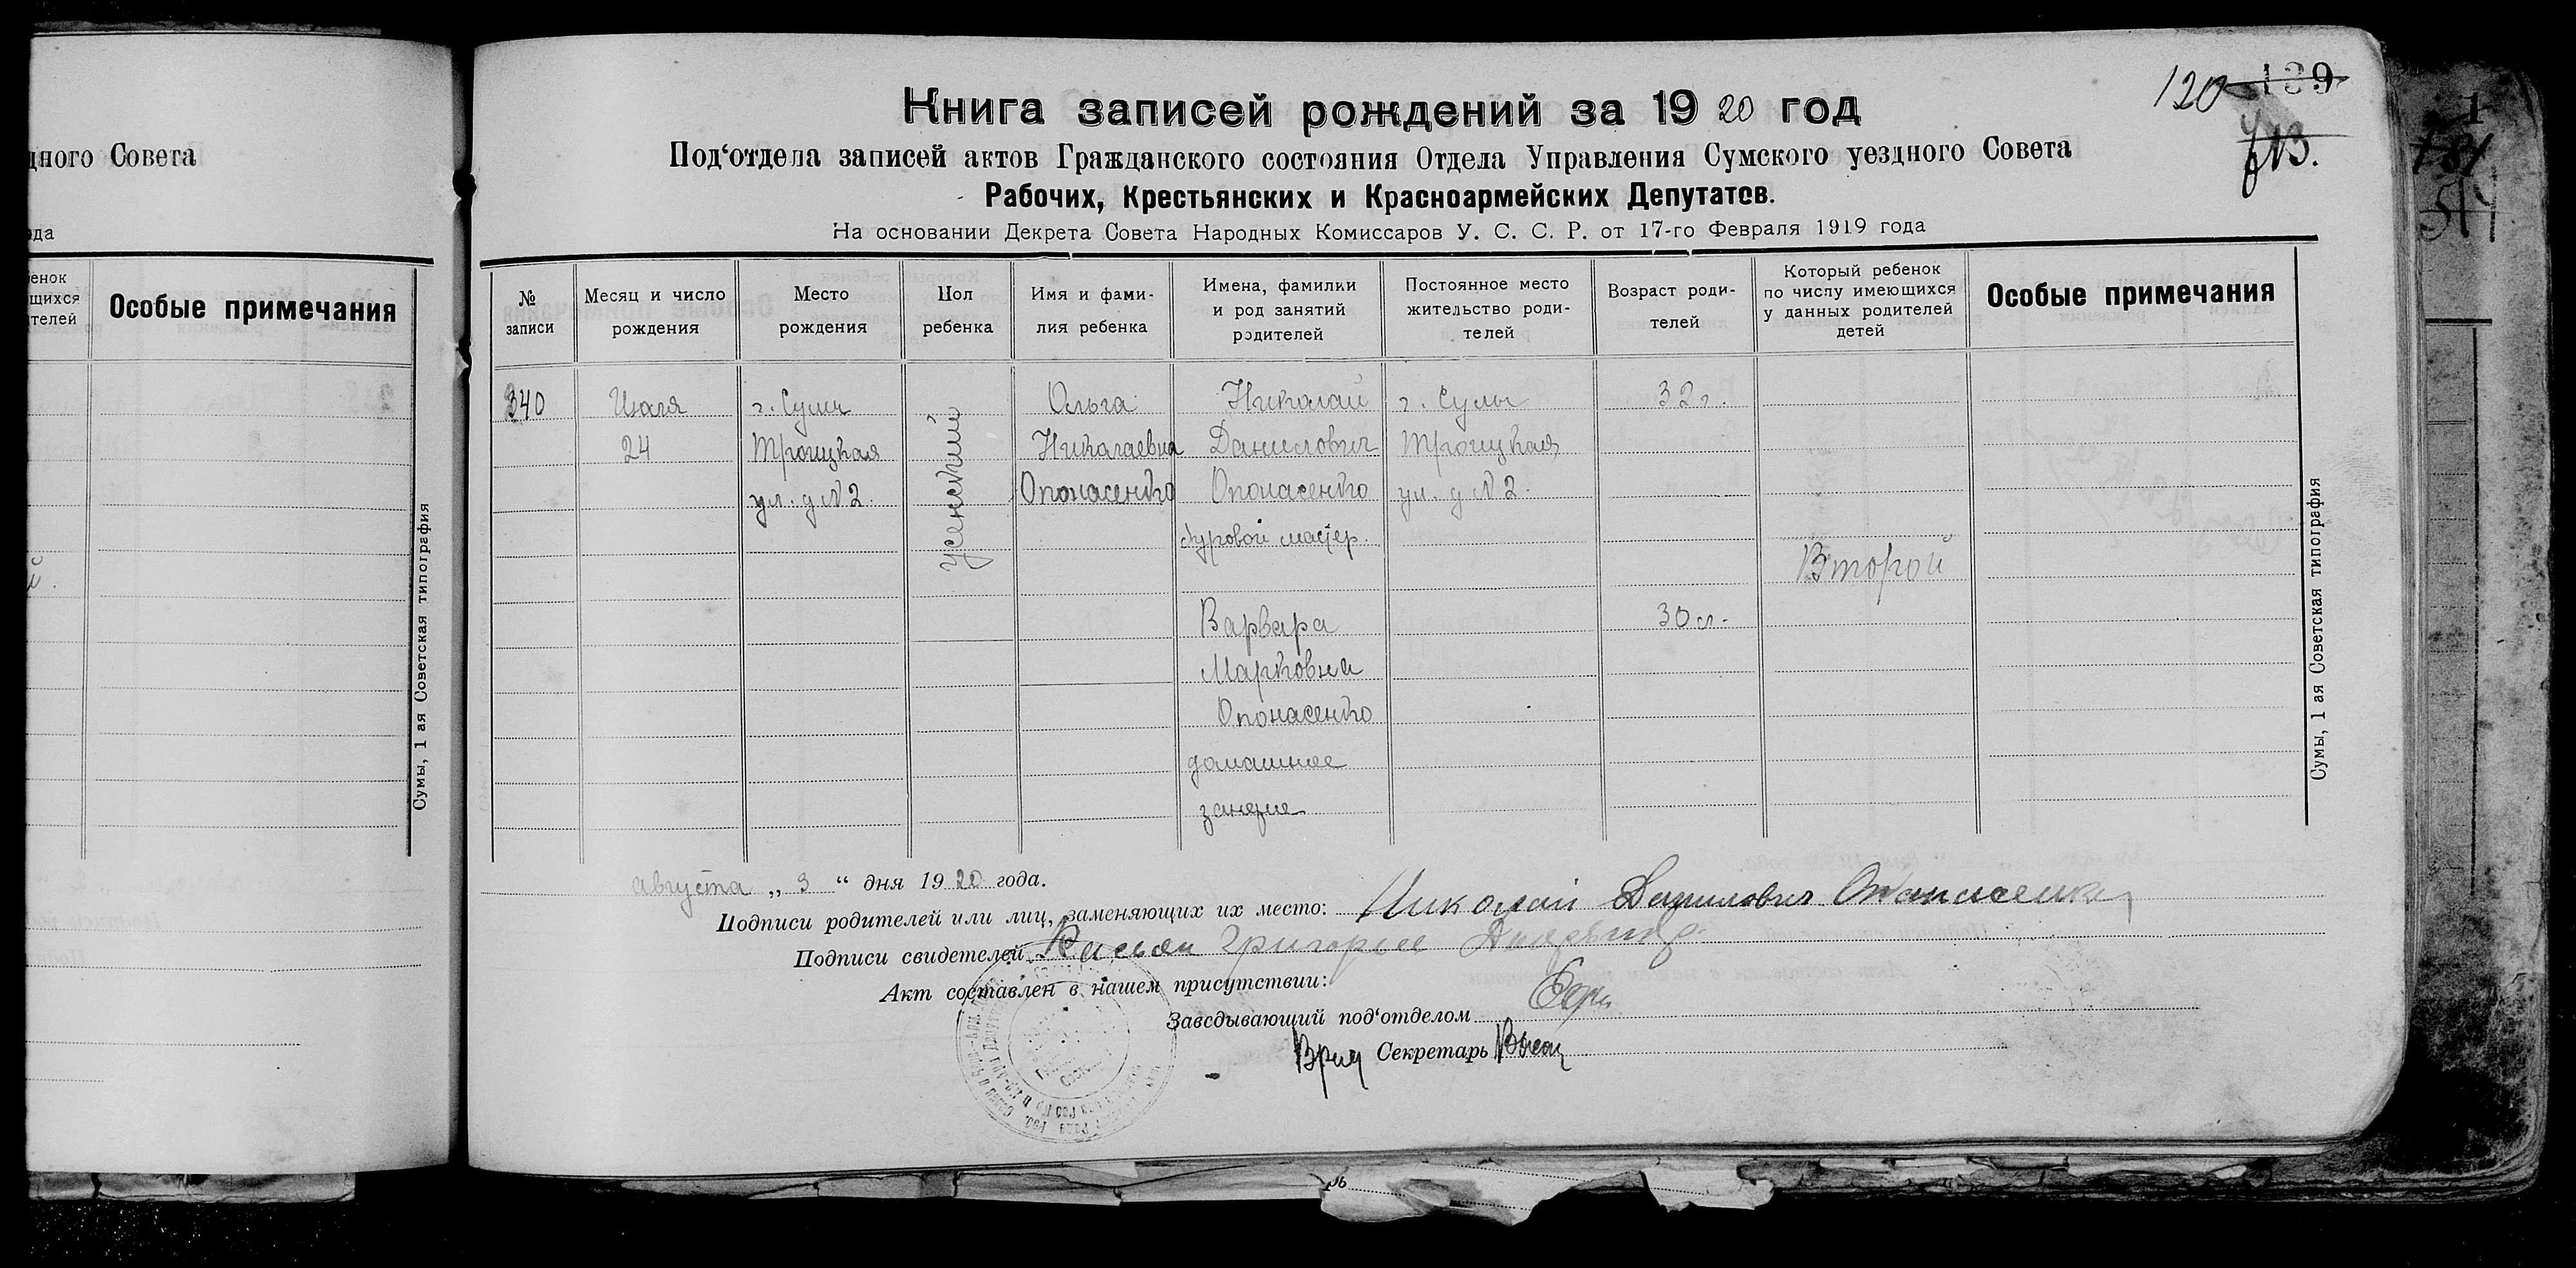 дного Совета
ода
енок
щихся
ителей
Особые примечания
Сумы, 1 ая Советская типография
120 139
Книга записей рождений за 19 20 год
Под‘отдела записей актов Гражданского состояния Отдела Управления Сумского уездного Совета
Рабочих, Крестьянских и Красноармейских Депутатов.
На основании Декрета Совета Народных Комиссаров У. С. С. Р. от 17-го Февраля 1919 года
№
записи
Месяц и число
рождения
Место
рождения
Пол
ребенка
Имя и фами-
лия ребенка
Имена, фамилии
и род занятий
родителей
Постоянное место
жительство роди-
телей
Возраст роди-
телей
Который ребенок
по числу имеющихся
у данных родителей
детей
Особые примечания
340
Июля
24
г. Сумы
Троицкая
ул. д N 2.
женский
Ольга
Николаевна
Опонасенко
Николай
Данилович
Опонасенко
буровой мастер.
Варвара
Марковна
Опонасенко
домашнее
занятие
г. Сумы
Троицкая
ул. д N 2.
32 г.
30 л.
Второй
Сумы, 1 ая Советская типография
августа „ 3 “ дня 19 20 года.
Подписи родителей или лиц, заменяющих их место: Николай Данилович
Подписи свидетелей Григорий
Акт составлен в нашем присутствии:
Заведывающий под‘отделом
Врид Секретарь